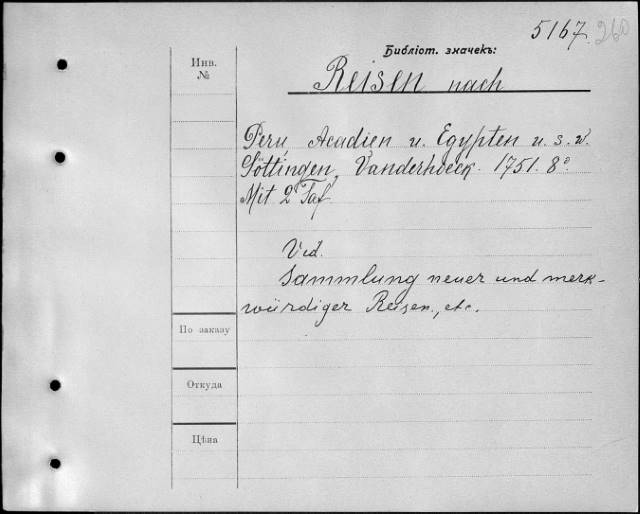 5167. 260
Библіот. значекъ:
Инв.
№
Reisen nach
Peru, Acadien u. Egypten u. s. w.
Göttingen, Vanderhoeck. 1751. 8º
Mit 2 Taf.
Vid.
Sammlung neuer und merk-
würdiger Reisen, etc.
По заказу
Откуда
Цѣна